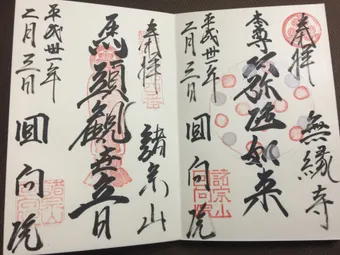 奉拝 無縁寺
本尊 弥陀如来
平成卅一年
二月三日 回向院
諸宗山
回向院
奉拝 諸宗山
馬頭観世音
平成卅一年
二月三日 回向院